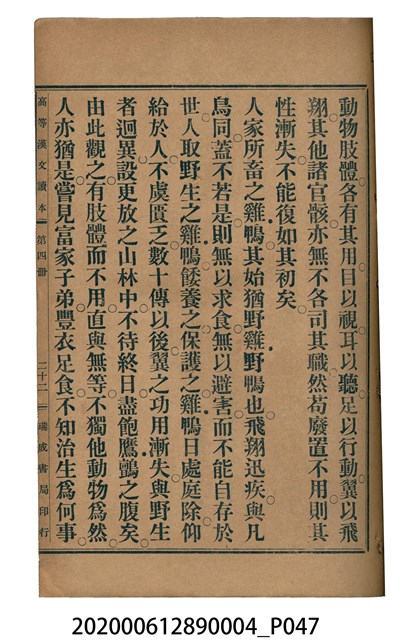 動物肢體。各有其用。目以視。耳以聽。足以行動。翼以飛
翔。其他諸官骸。亦無不各司其職。然苟廢置不用。則其
性漸失。不能復如其初矣。
人家所畜之雞鴨。其始猶野雞野鴨也。飛翔迅疾。與凡
鳥同。蓋不若是。則無以求食。無以避害。而不能自存於
世。人取野生之雞鴨。餧養之。保護之。雞鴨日處庭除。仰
給於人。不虞匱乏。數十傳以後。翼之功用漸失。與野生
者迥異。設更放之山林中。不待終日。盡飽鷹鸇之腹矣。
由此觀之。有肢體而不用。直與無等。不獨他動物爲然。
人亦猶是。嘗見富家子弟。豐衣足食。不知治生爲何事
高等漢文讀本 第四册 二十二 瑞成書局印行
202000612890004_P047